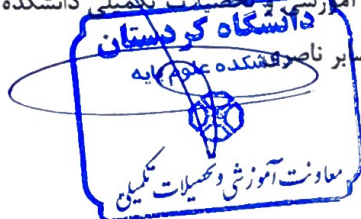 آموزشی و تحصیلات تکمیلی دانشکده
دانشگاه کردستان
ناصری
دانشکده علوم پایه
معاونت آموزشی و تحصیلات تکمیلی